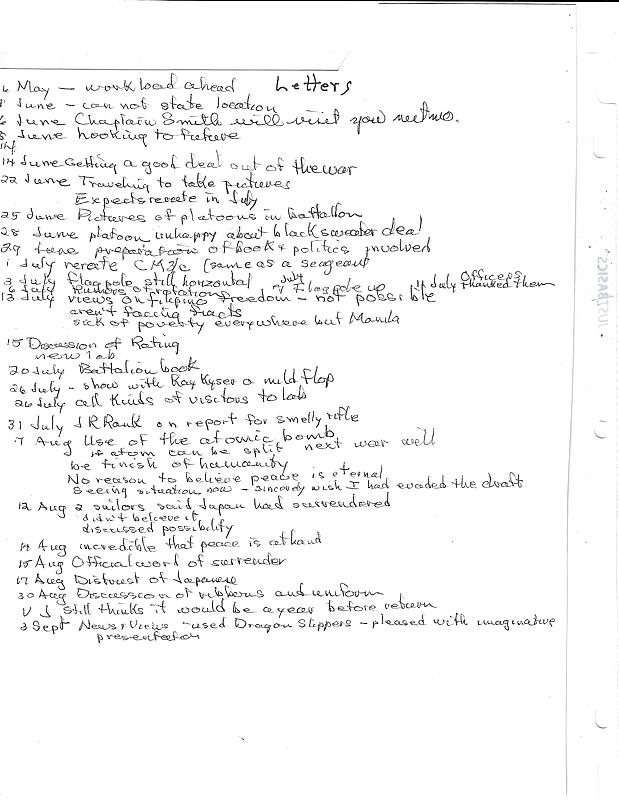 May - workload ahead Letters
June - can not state location
June Chaplain Smith will visit you
June hooking to future
14 June Getting a good deal out of the war
22 June Traveling to take pictures
Expects rerate in July
25 June Pictures of platoons in battallon
28 June platoon unhappy about black sweater deal
29 June preparation of book & politics involved
1 July rerate CM3/c (same as a seageant
3 July flagpole still horizontal
6 July Rumors of rotation 7 July Flagpole up 11 July Officers thanked them
13 July views on filipino freedom - not possible
aren't facing facts
sick of poverty everywhere but Manila
15 Discussion of Rating
new lab
20 July Battalion book
26 July - show with Kay Kyser a mild flop
26 July all kinds of visitors to lab
31 July J R Rank on report for smelly rifle
7 Aug Use of the atomic bomb
If atom can be split next war will
be finish of humanity
No reason to believe peace is eternal
Seeing situation now - sincerely wish I had evaded the draft
12 Aug 2 sailors said Japan had surrendered
didn't believe it
discussed possibility
14 Aug incredible that peace is at hand
15 Aug Official word of surrender
17 Aug Distrust of Japanese
30 Aug Discussion of ribbons and uniform
V J still thinks it would be a year before return
3 Sept News & Views - used Dragon Slippers - pleased with imaginative
presentation
JUSTBASICS